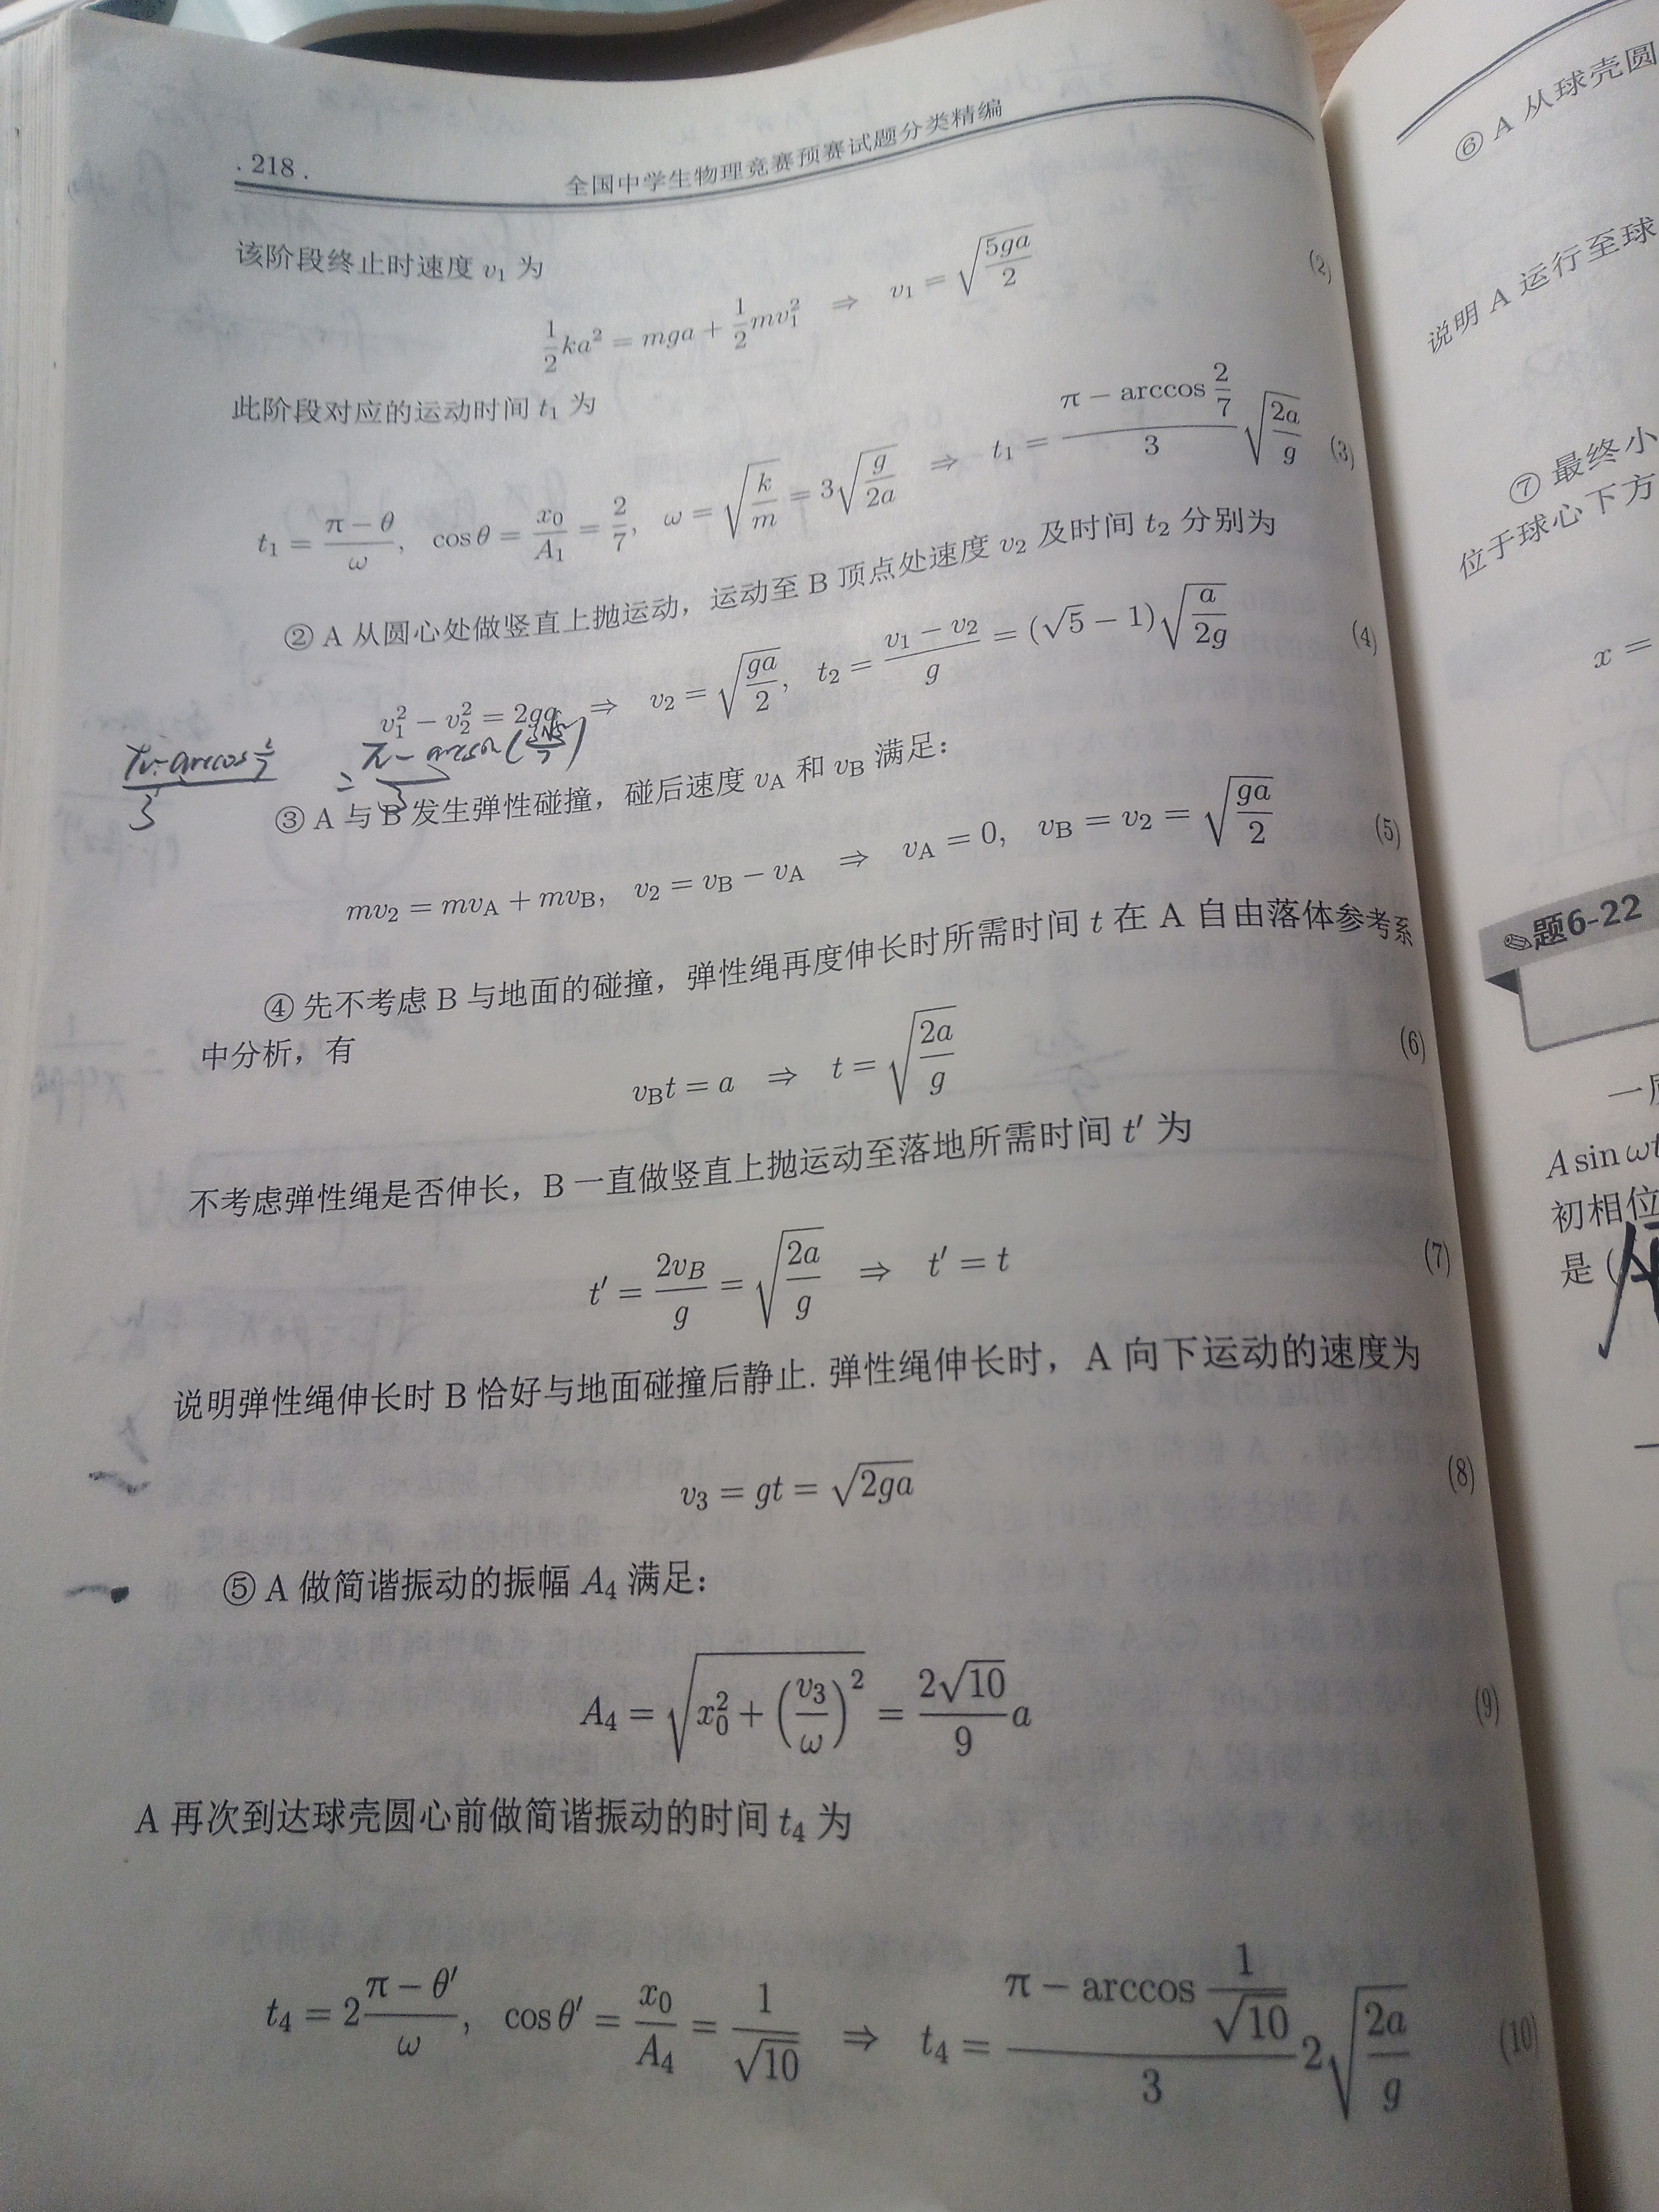 . 218 .
全国中学生物理竞赛预赛试题分类精编
该阶段终止时速度 v₁ 为
\frac{1}{2}ka² = mga + \frac{1}{2}mv₁² ⇒ v₁ = \sqrt{\frac{5ga}{2}} (2)
此阶段对应的运动时间 t₁ 为
t₁ = \frac{π − θ}{ω}, cos θ = \frac{x₀}{A₁} = \frac{2}{7}, ω = \sqrt{\frac{k}{m}} = 3\sqrt{\frac{g}{2a}} ⇒ t₁ = \frac{π − arccos \frac{2}{7}}{3}\sqrt{\frac{2a}{g}} (3)
② A 从圆心处做竖直上抛运动，运动至 B 顶点处速度 v₂ 及时间 t₂ 分别为
v₁² − v₂² = 2ga ⇒ v₂ = \sqrt{\frac{ga}{2}}, t₂ = \frac{v₁ − v₂}{g} = (√5 − 1)\sqrt{\frac{a}{2g}} (4)
\frac{π − arccos \frac{2}{7}}{3} = \frac{π − arcsin(\frac{3√5}{7})}{3}
③ A 与 B 发生弹性碰撞，碰后速度 v_A 和 v_B 满足：
mv₂ = mv_A + mv_B, v₂ = v_B − v_A ⇒ v_A = 0, v_B = v₂ = \sqrt{\frac{ga}{2}} (5)
④ 先不考虑 B 与地面的碰撞，弹性绳再度伸长时所需时间 t 在 A 自由落体参考系
中分析，有
v_B t = a ⇒ t = \sqrt{\frac{2a}{g}} (6)
不考虑弹性绳是否伸长，B 一直做竖直上抛运动至落地所需时间 t′ 为
t′ = \frac{2v_B}{g} = \sqrt{\frac{2a}{g}} ⇒ t′ = t (7)
说明弹性绳伸长时 B 恰好与地面碰撞后静止. 弹性绳伸长时，A 向下运动的速度为
v₃ = gt = \sqrt{2ga} (8)
⑤ A 做简谐振动的振幅 A₄ 满足：
A₄ = \sqrt{x₀² + (\frac{v₃}{ω})²} = \frac{2\sqrt{10}}{9}a (9)
A 再次到达球壳圆心前做简谐振动的时间 t₄ 为
t₄ = 2\frac{π − θ′}{ω}, cos θ′ = \frac{x₀}{A₄} = \frac{1}{\sqrt{10}} ⇒ t₄ = \frac{π − arccos \frac{1}{\sqrt{10}}}{3}2\sqrt{\frac{2a}{g}} (10)
⑥ A 从球壳圆
说明 A 运行至球
⑦ 最终小
位于球心下方
x =
题6-22
一
A sin ωt
初相位
是 (